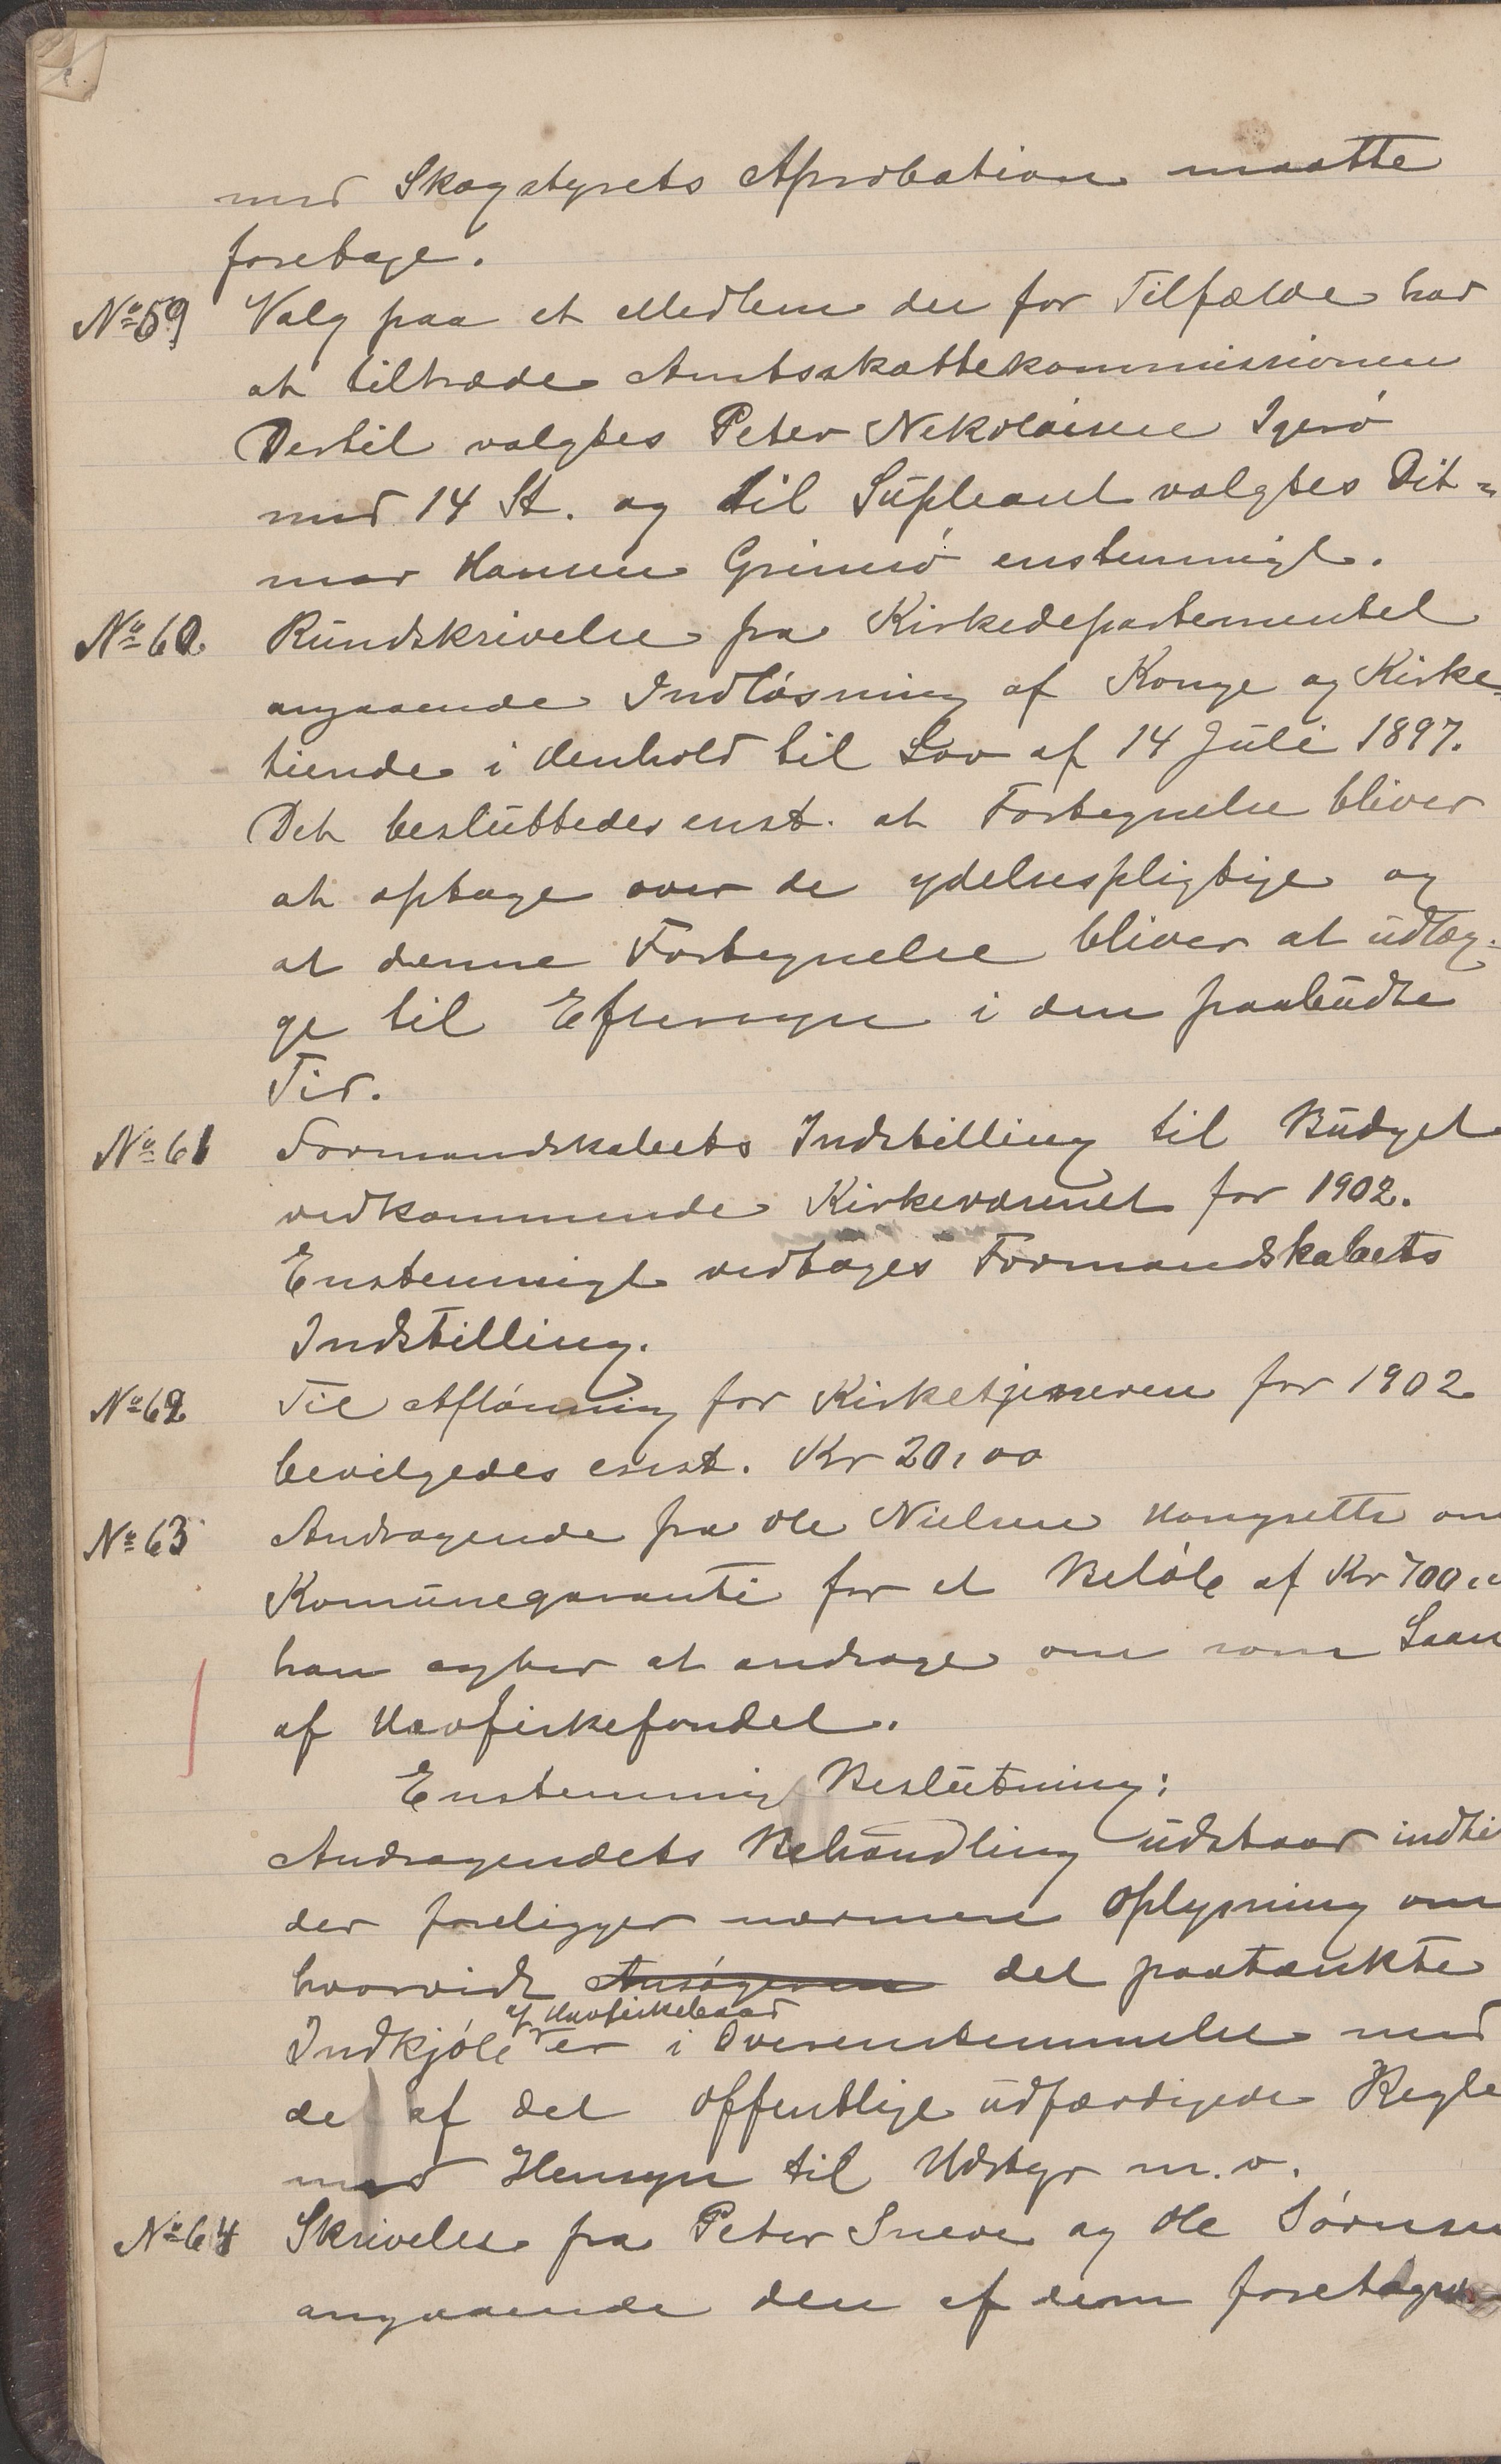 med Skogstyrets Aprobation maatte
foretage.
No 59 Valg paa et Medlem der for Tilfælde har
at tiltræde Amtsskattekommissionen
Dertil valgtes Peter Nekolaisen Igerö
med 14 St. og til Supleant valgtes Dit=
mar Hansen Grimsö enstemmigt.
No 60 Rundskrivelse fra Kirkedepartementet
angaaende Indløsning af Konge og Kirke=
tiende i Henhold til Lov af 14 Juli 1897.
Det besluttedes enst. at Fortegnelse bliver
at optage over de ydelsespligtige og
at denne Fortegnelse bliver at udlæg-
ge til Eftersyn i den paabudte
Tid.
No 61 Formandskabets Indstilling til Budget
vedkommende Kirkevæsenet for 1902.
Enstemmigt vedtoges Formandskabets
Indstilling.
No 62 Til Aflønning for Kirketjeneren for 1902
bevilgedes enst. Kr 20,00
No 63 Andragende fra Ole Nielsen om
Komunegaranti for et Beløb af Kr 700,00
han agter at andrage om som Laan
af Havfiskefondet.
Enstemmig Beslutning:
Andragendets Behandling udstaar indti
der foreligger nærmere Oplysning om
hvorvidt Ansøgeren det paatænkte
af Havfiskebaad
Indkjøb er i Overenstemmelse med
de af det offentlige udfærdigede Regle
med Hensyn til Udstyr m.v.
No 64 Skrivelse fra Peter Sneve og Ole Sörensen
angaaende den af dem foretagne